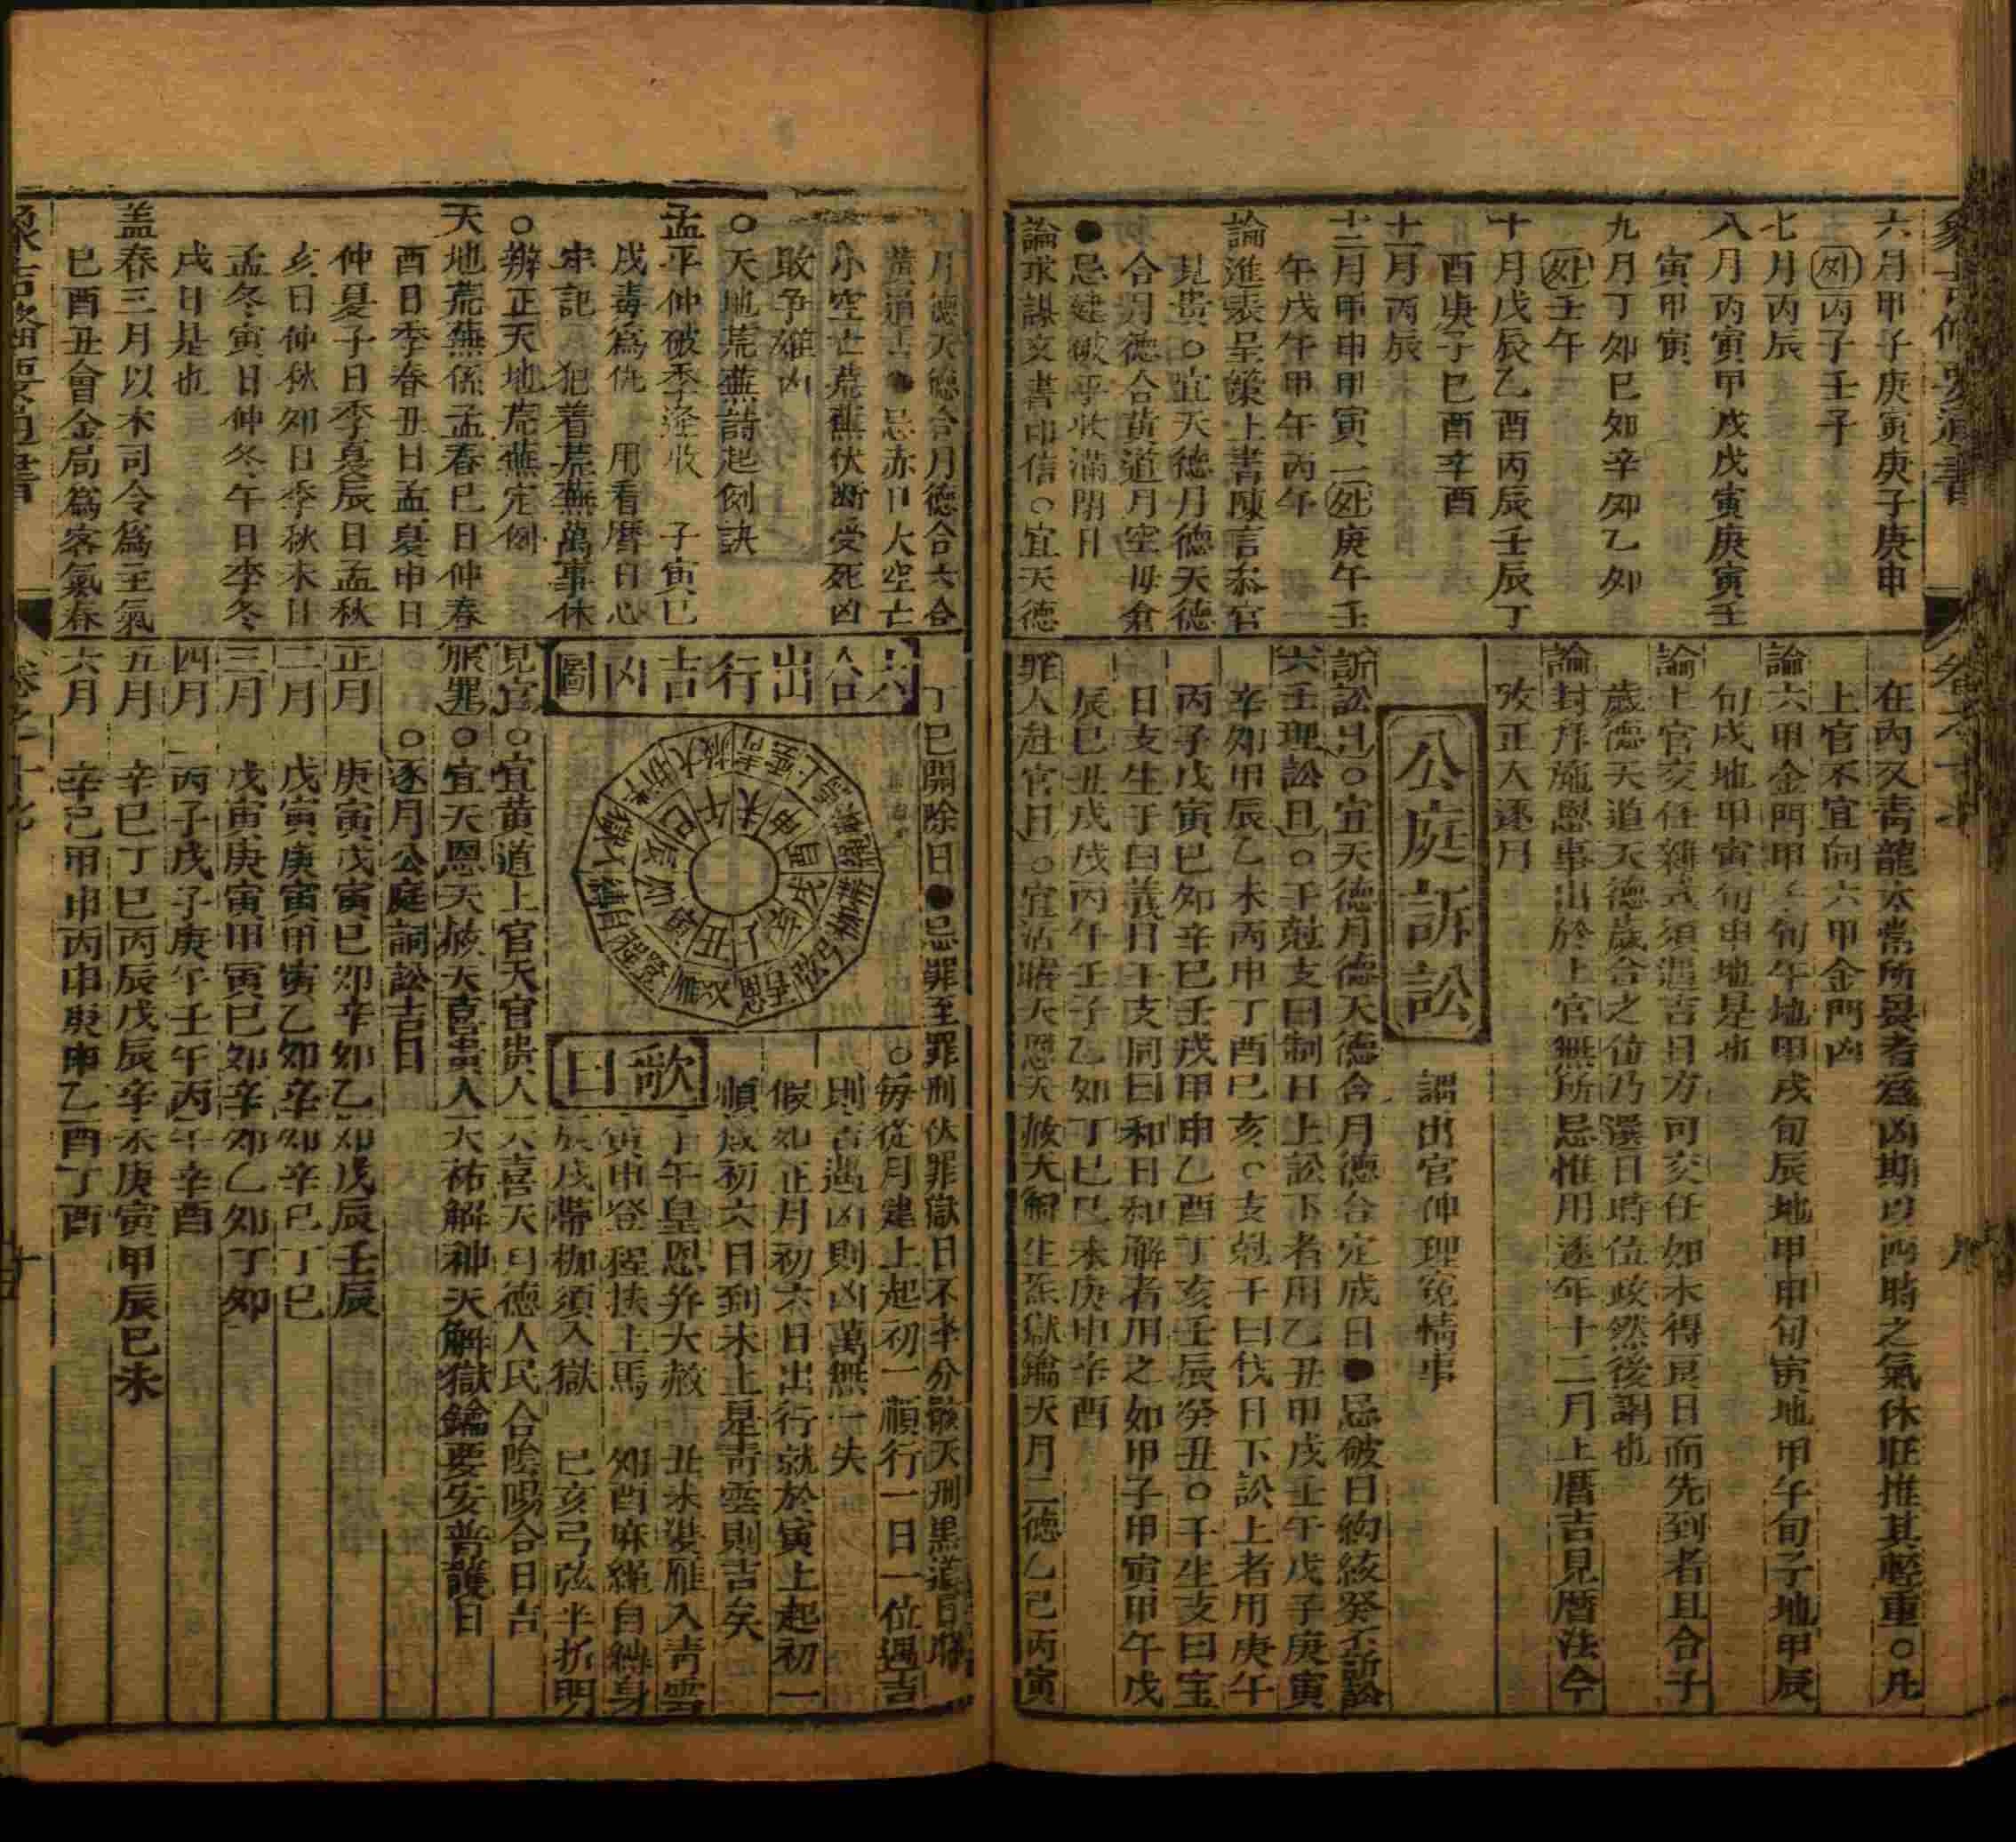 六月甲子庚寅庚子庚申
丙子壬子
七月丙辰
八月丙寅甲戌戊寅庚寅壬
寅甲寅
九月丁卯巳卯辛卯乙卯
壬午
十月戊辰乙酉丙辰壬辰丁
酉庚子巳酉辛酉
十一月丙辰
十二月甲申甲寅 庚午壬
午戊午甲午丙午
論進表呈策上書陳言叅官
見貴○宜天德月德天德
合月德合黃道月空母倉
●忌建破平收滿閉日
論求謀文書印信○宜天德
在內又青龍太常所畏者爲凶斯以四時之氣休旺推其輕重○凡
上官不宜向六甲金門凶
論六甲金門甲子旬午地甲戌旬辰地甲申旬寅地甲午旬子地甲辰
旬戌地甲寅旬申地是也
論上官交任雜 須遇吉日方可交任如未得良日而先到者且合子
歲德天道天德歲合之位乃選日時位政然後謝也
論封拜施恩事出於上官無所忌惟用逐年十二月上曆吉見曆法今
攷正大逐月
公庭訴訟
謂出官伸理冤情事
訴訟日○宜天德月德天德合月德合定成日●忌破日絇絞癸不訴訟
六壬理訟日○干尅支曰制日上訟下者用乙丑甲戌壬午戊子庚寅
辛卯甲辰乙未丙申丁酉巳亥○支尅干曰伐日下訟上者用庚午
丙子戊寅巳卯辛巳壬戌甲申乙酉丁亥壬辰癸丑○干生支曰宝
日支生干曰義日干支同曰和日和解者用之如甲子甲寅甲午戊
辰巳丑戌戌丙午壬子乙卯丁巳巳未庚申辛酉
罪人赴官日○宜活曜天恩天赦天解生炁獄鑰天月二德乙己丙寅
月德天德合月德合六合
黃道吉●忌赤口大空亡
小空亡荒蕪伏斷受死凶
敗爭雄凶
○天地荒蕪詩起例訣
孟平仲破季逢收 子寅巳
戌毒爲仇 用看曆日心
牢記 犯着荒蕪萬事休
○辦正天地荒蕪定例
天地荒蕪係孟春巳日仲春
酉日季春丑日孟夏申日
仲夏子日季夏辰日孟秋
亥日仲秋卯日季秋未日
孟冬寅日仲冬午日季冬
戌日是也
盖春三月以木司令爲主氣
巳酉丑會金局爲客氣春
丁巳開除日●忌罪至罪刑伏罪獄日不 分骸天刑黑道日
六合出行吉凶圖
○每從月建上起初一順行一日一位遇吉
則吉遇凶則凶萬無一失
假如正月初六日出行就於寅上起初一
順成初六日到未上是青雲則吉矣
歌曰
子午皇恩并大赦 丑未 雁入青雲
寅申登程扶上馬 卯酉麻繩自縛身
辰戌帶枷須入獄 巳亥弓弦半折明
見官○宜黃道上官天官貴人天喜天月德人民合陰陽合日吉
服罪○宜天恩天赦天喜貴人天祐解神天解獄鑰要安普護日
○逐月公庭詞訟吉日
正月 庚寅戊寅巳卯辛卯乙卯戊辰壬辰
二月 戊寅庚寅甲寅乙卯辛卯辛巳丁巳
三月 戊寅庚寅甲寅巳卯辛卯乙卯丁卯
四月 丙子戊子庚午壬午丙午辛酉
五月 辛巳丁巳丙辰戊辰辛未庚寅甲辰巳未
六月 辛巳甲申丙申庚申乙酉丁酉